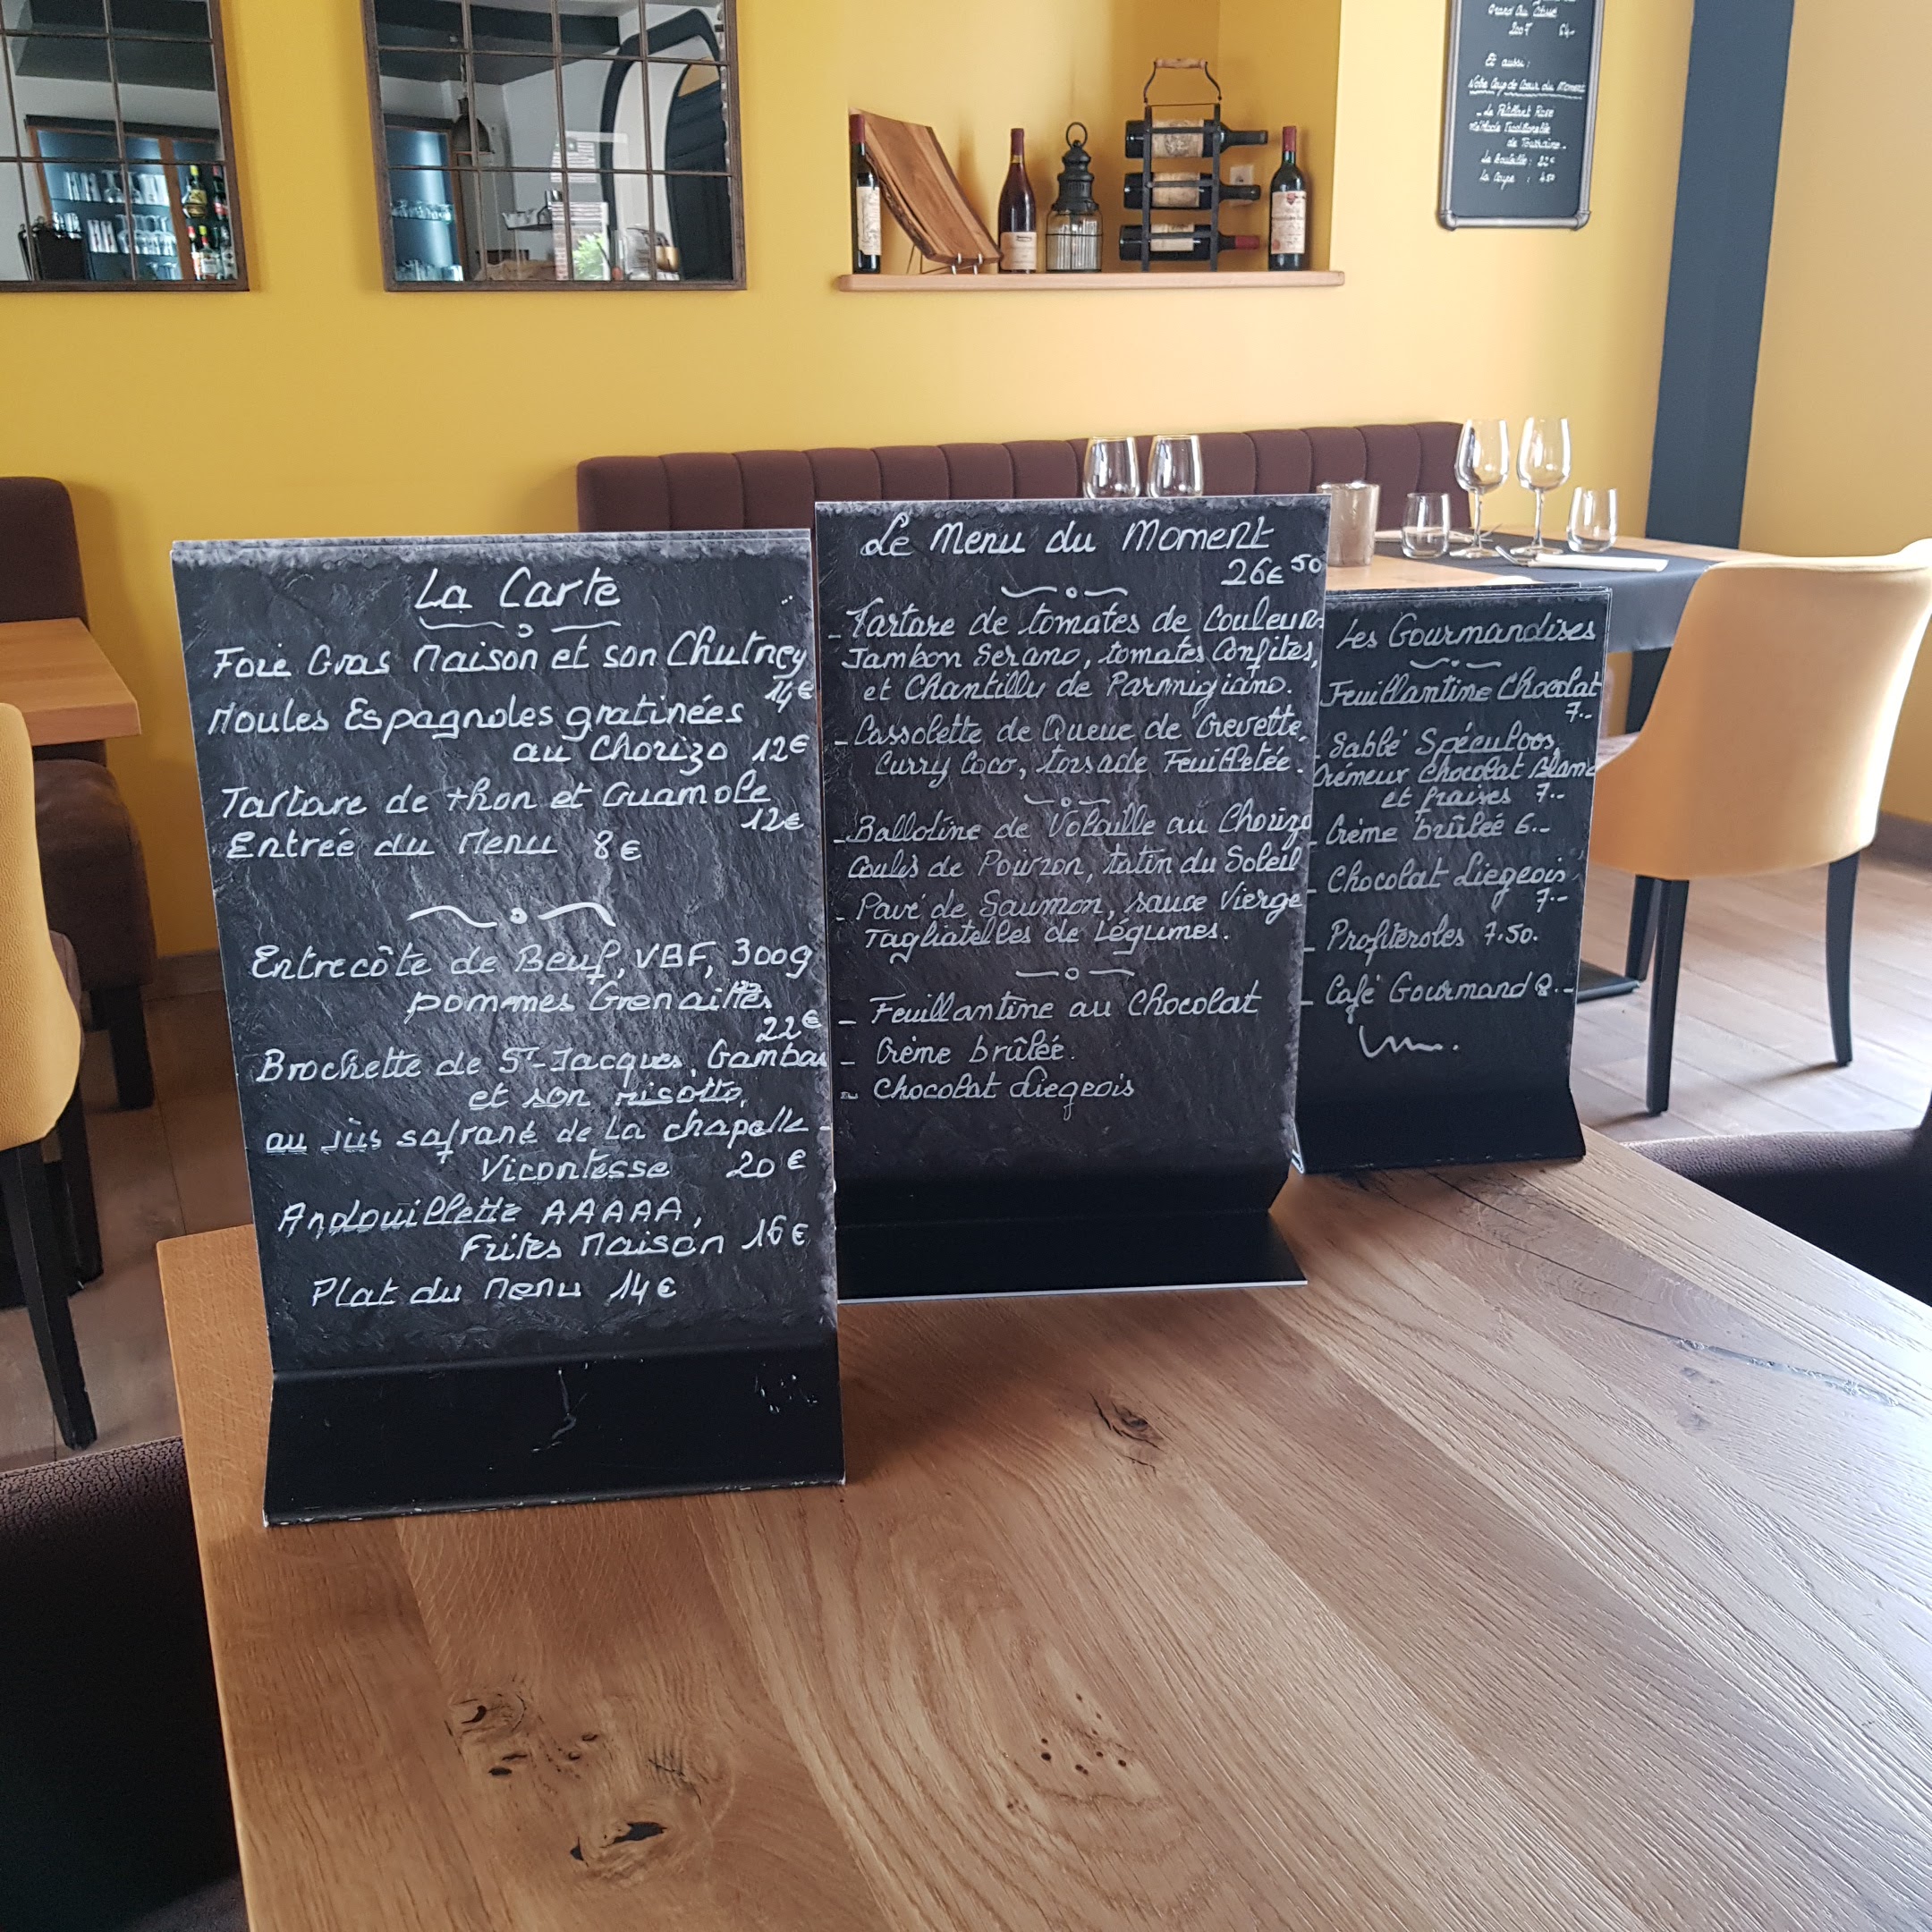 La Carte
Foie Gras Maison et son Chutney
14€
Moules Espagnoles gratinées
au Chorizo 12€
Tartare de thon et Guamole
12€
Entrée du Menu 8€
Entrecôte de Beuf, VBF, 300g
pommes Grenailles
22€
Brochette de St-Jacques, Gambas
et son risotto,
au jus safrané de La chapelle-
Vicontesse 20€
Andouillette AAAAA,
Frites Maison 16€
Plat du Menu 14€
Le Menu du Moment
26€50
- Tartare de tomates de Couleur
Jambon Serano, tomates Confites,
et Chantilly de Parmigiano.
- Cassolette de Queue de Crevette,
Curry Coco, torsade Feuilletée.
- Ballotine de Volaille au Chorizo
Coulis de Poivron, tatin du Soleil
- Pavé de Saumon, sauce Vierge
Tagliatelles de Légumes.
- Feuillantine au Chocolat
- Crème brûlée.
- Chocolat Liegeois
Les Gourmandises
Feuillantine Chocolat
7.-
- Sablé Spéculoos,
Crémeux Chocolat Blanc
et fraises 7.-
- Crème brûlée 6.-
- Chocolat Liegeois
7.-
- Profiteroles 7.50.
- Café Gourmand 8.-
Grand Cru
2007 54.-
Et aussi :
Notre Coup de Coeur du Moment
- Le Pétillant Rosé
Méthode Traditionelle
de Touraine -
La Bouteille : 22€
La Coupe : 4.50